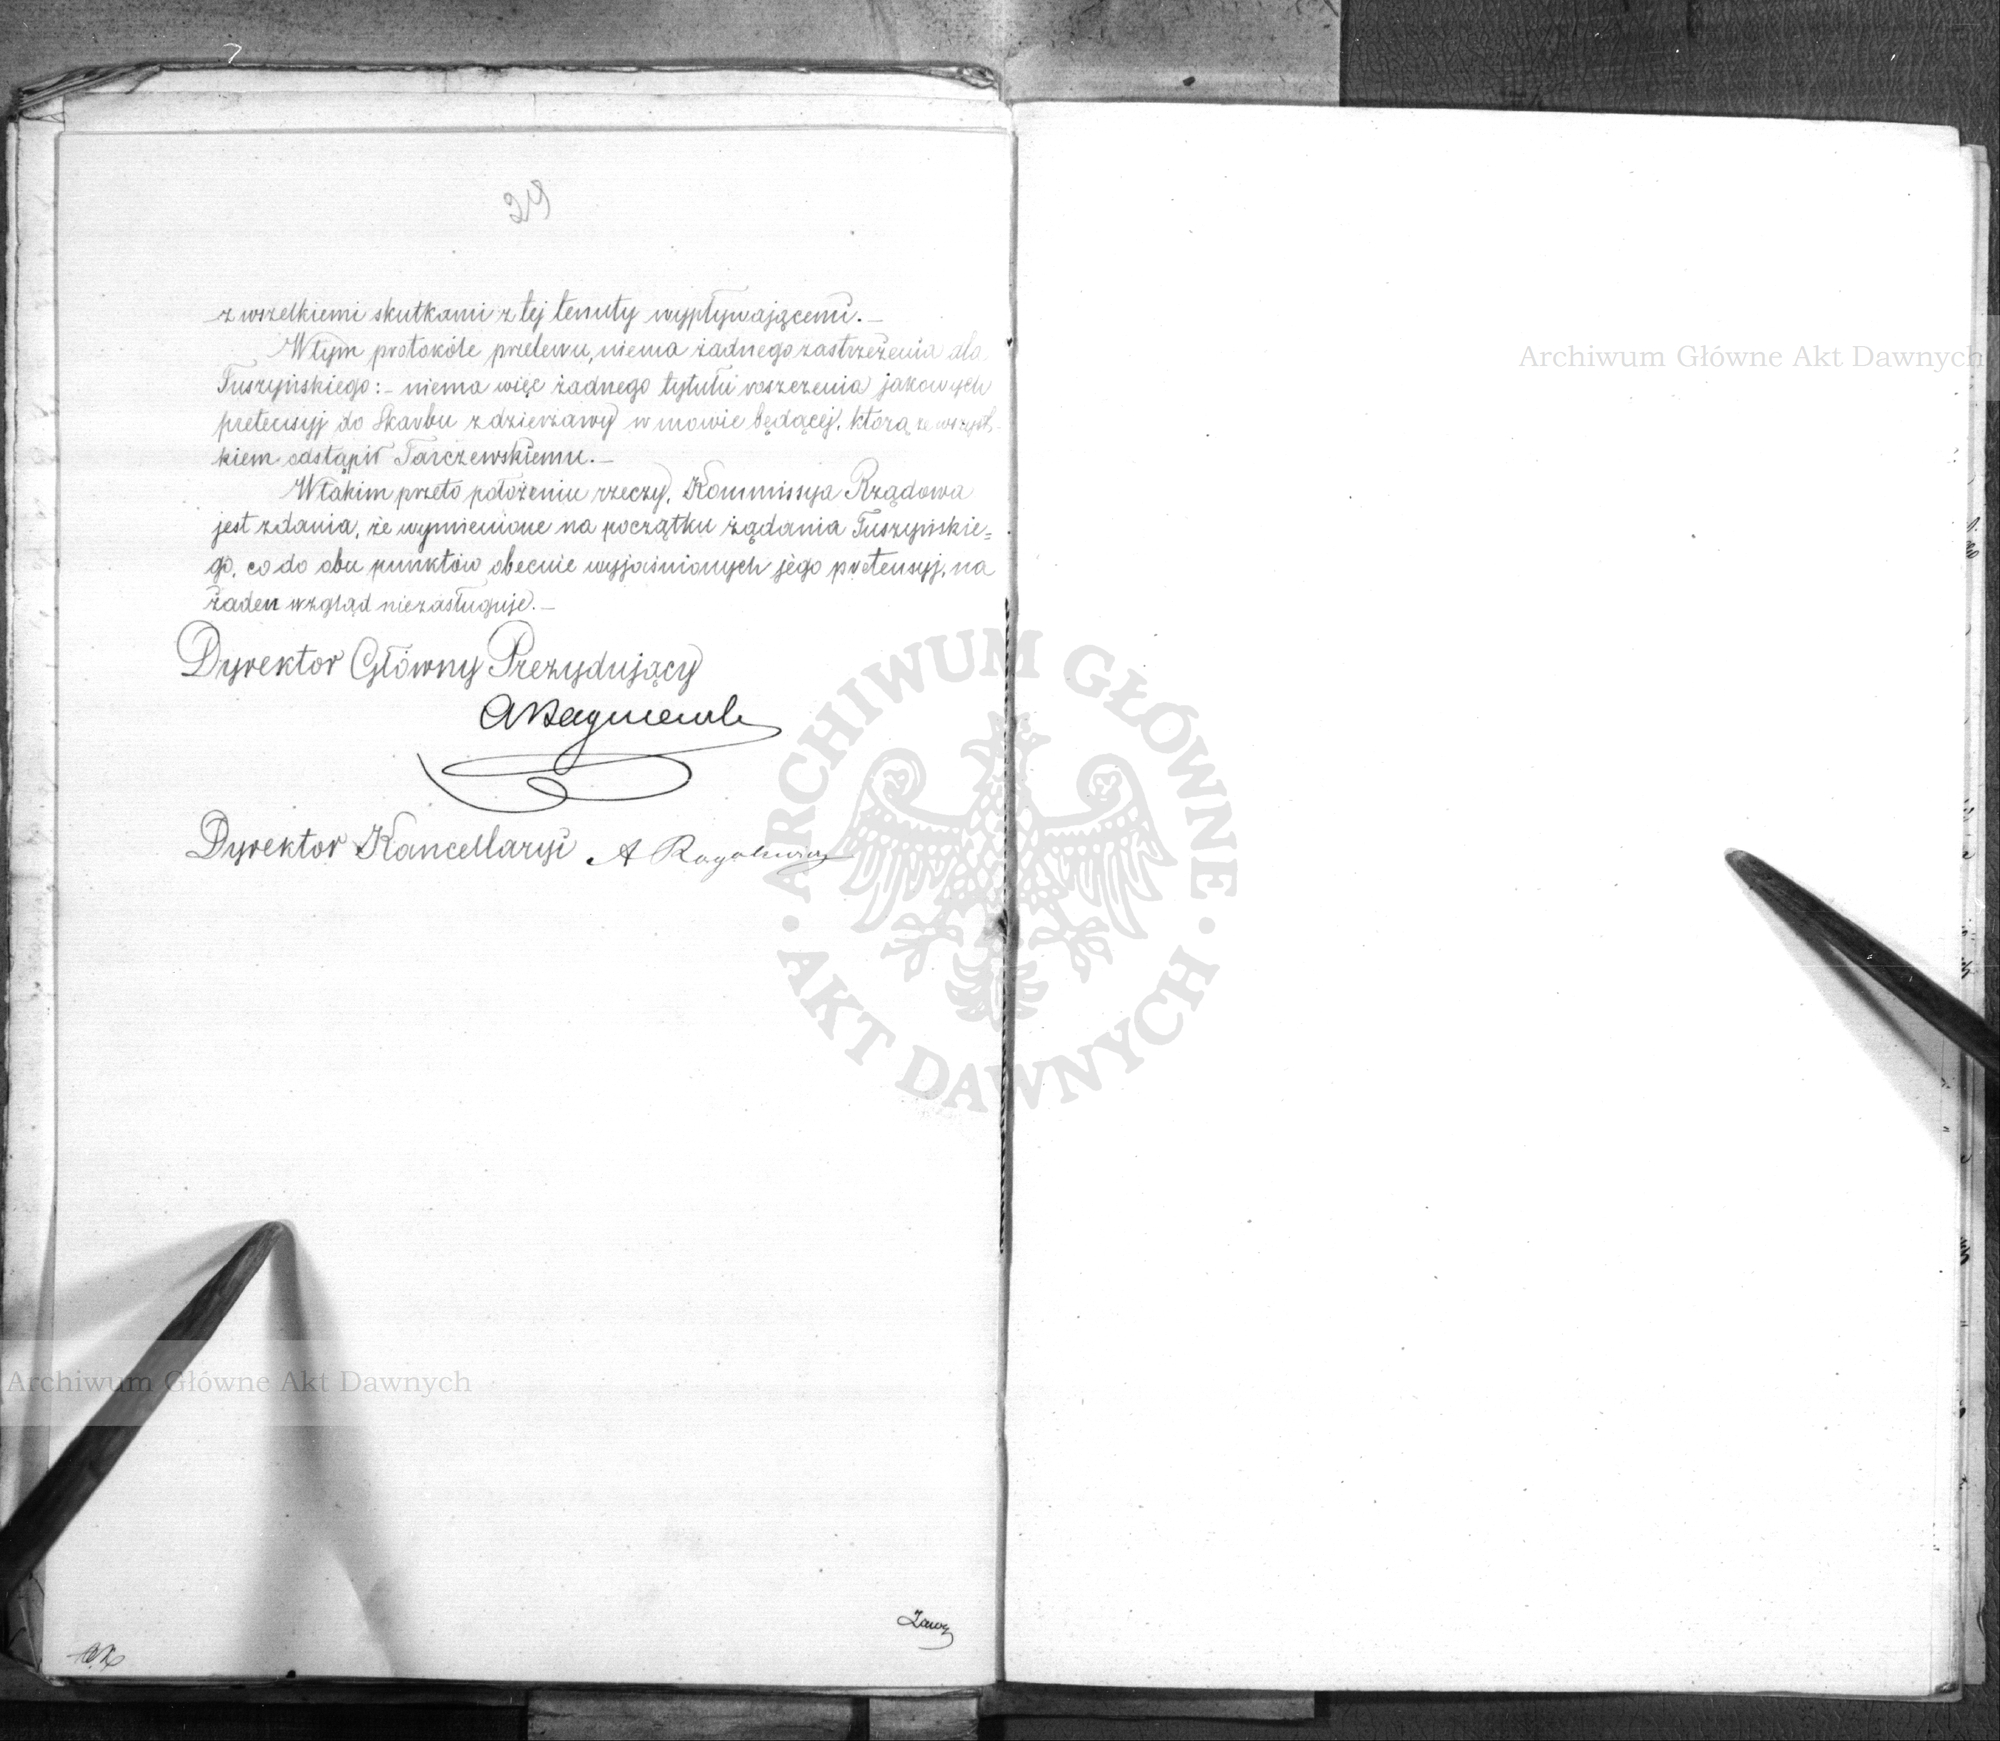 24
z wszelkiemi skutkami z tej tenuty wypływającemi. —
W tym protokóle przelewu, niema żadnego zastrzeżenia dla
Tuszyńskiego: — niema więc żadnego tytułu roszczenia jakowych
pretensyj do Skarbu z dzierżawy w mowie będącej, którą ze wszyst-
kiem odstąpił Tarczewskiemu. —
W takim przeto położeniu rzeczy, Kommissya Rządowa
jest zdania, że wymienione na początku żądania Tuszyńskie=
go, co do obu punktów obecnie wyjaśnionych jego pretensyj, na
żaden wzgląd niezasługuje. —
Dyrektor Główny Prezydujący
Dyrektor Kancellaryi A
ARCHIWUM GŁÓWNE
AKT DAWNYCH
Archiwum Główne Akt Dawnych
Archiwum Główne Akt Dawnych